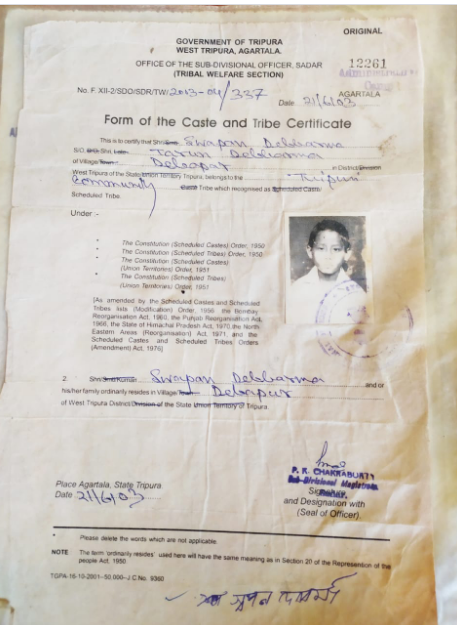 ORIGINAL
GOVERNMENT OF TRIPURA
WEST TRIPURA, AGARTALA.
OFFICE OF THE SUB-DIVISIONAL OFFICER, SADAR
(TRIBAL WELFARE SECTION)
12261
AGARTALA
No. F. XII-2/SDO/SDR/TW/2003-04/337
Date 21/6/03
Form of the Caste and Tribe Certificate
This is to certify that Shri Swapan Debbarma
S/O, Shri, Tarun Debbarma
of Village in District/Division
West Tripura of the State/Union Territory Tripura, belongs to the Tripuri
Community Caste Tribe which recognised as Scheduled Caste
Scheduled Tribe.
Under :-
* The Constitution (Scheduled Castes) Order, 1950
* The Constitution (Scheduled Tribes) Order, 1950
* The Constitution (Scheduled Castes)
(Union Territories) Order, 1951
* The Constitution (Scheduled Tribes)
(Union Territories) Order, 1951
[As amended by the Scheduled Castes and Scheduled
Tribes lists (Modification) Order, 1956 the Bombay
Reorganisation Act, 1960, the Punjab Reorganisation Act,
1966, the State of Himachal Pradesh Act, 1970, the North
Eastern Areas (Reorganisation) Act, 1971, and the
Scheduled Castes and Scheduled Tribes Orders
(Amendment) Act, 1976]
2. Shri Swapan Debbarma and or
his/her family ordinarily resides in Village
of West Tripura District/Division of the State Union Territory of Tripura.
P. R. CHAKRABURTY
Sub-Divisional Magistrate
Sadar.
Place Agartala, State Tripura.
Date 21/6/03
and Designation with
(Seal of Officer).
* Please delete the words which are not applicable.
NOTE The term 'ordinarily resides' used here will have the same meaning as in Section 20 of the Representation of the
people Act, 1950
TGPA-16-10-2001-50,000-J.C.No. 9360
স্বপন দেববর্মা